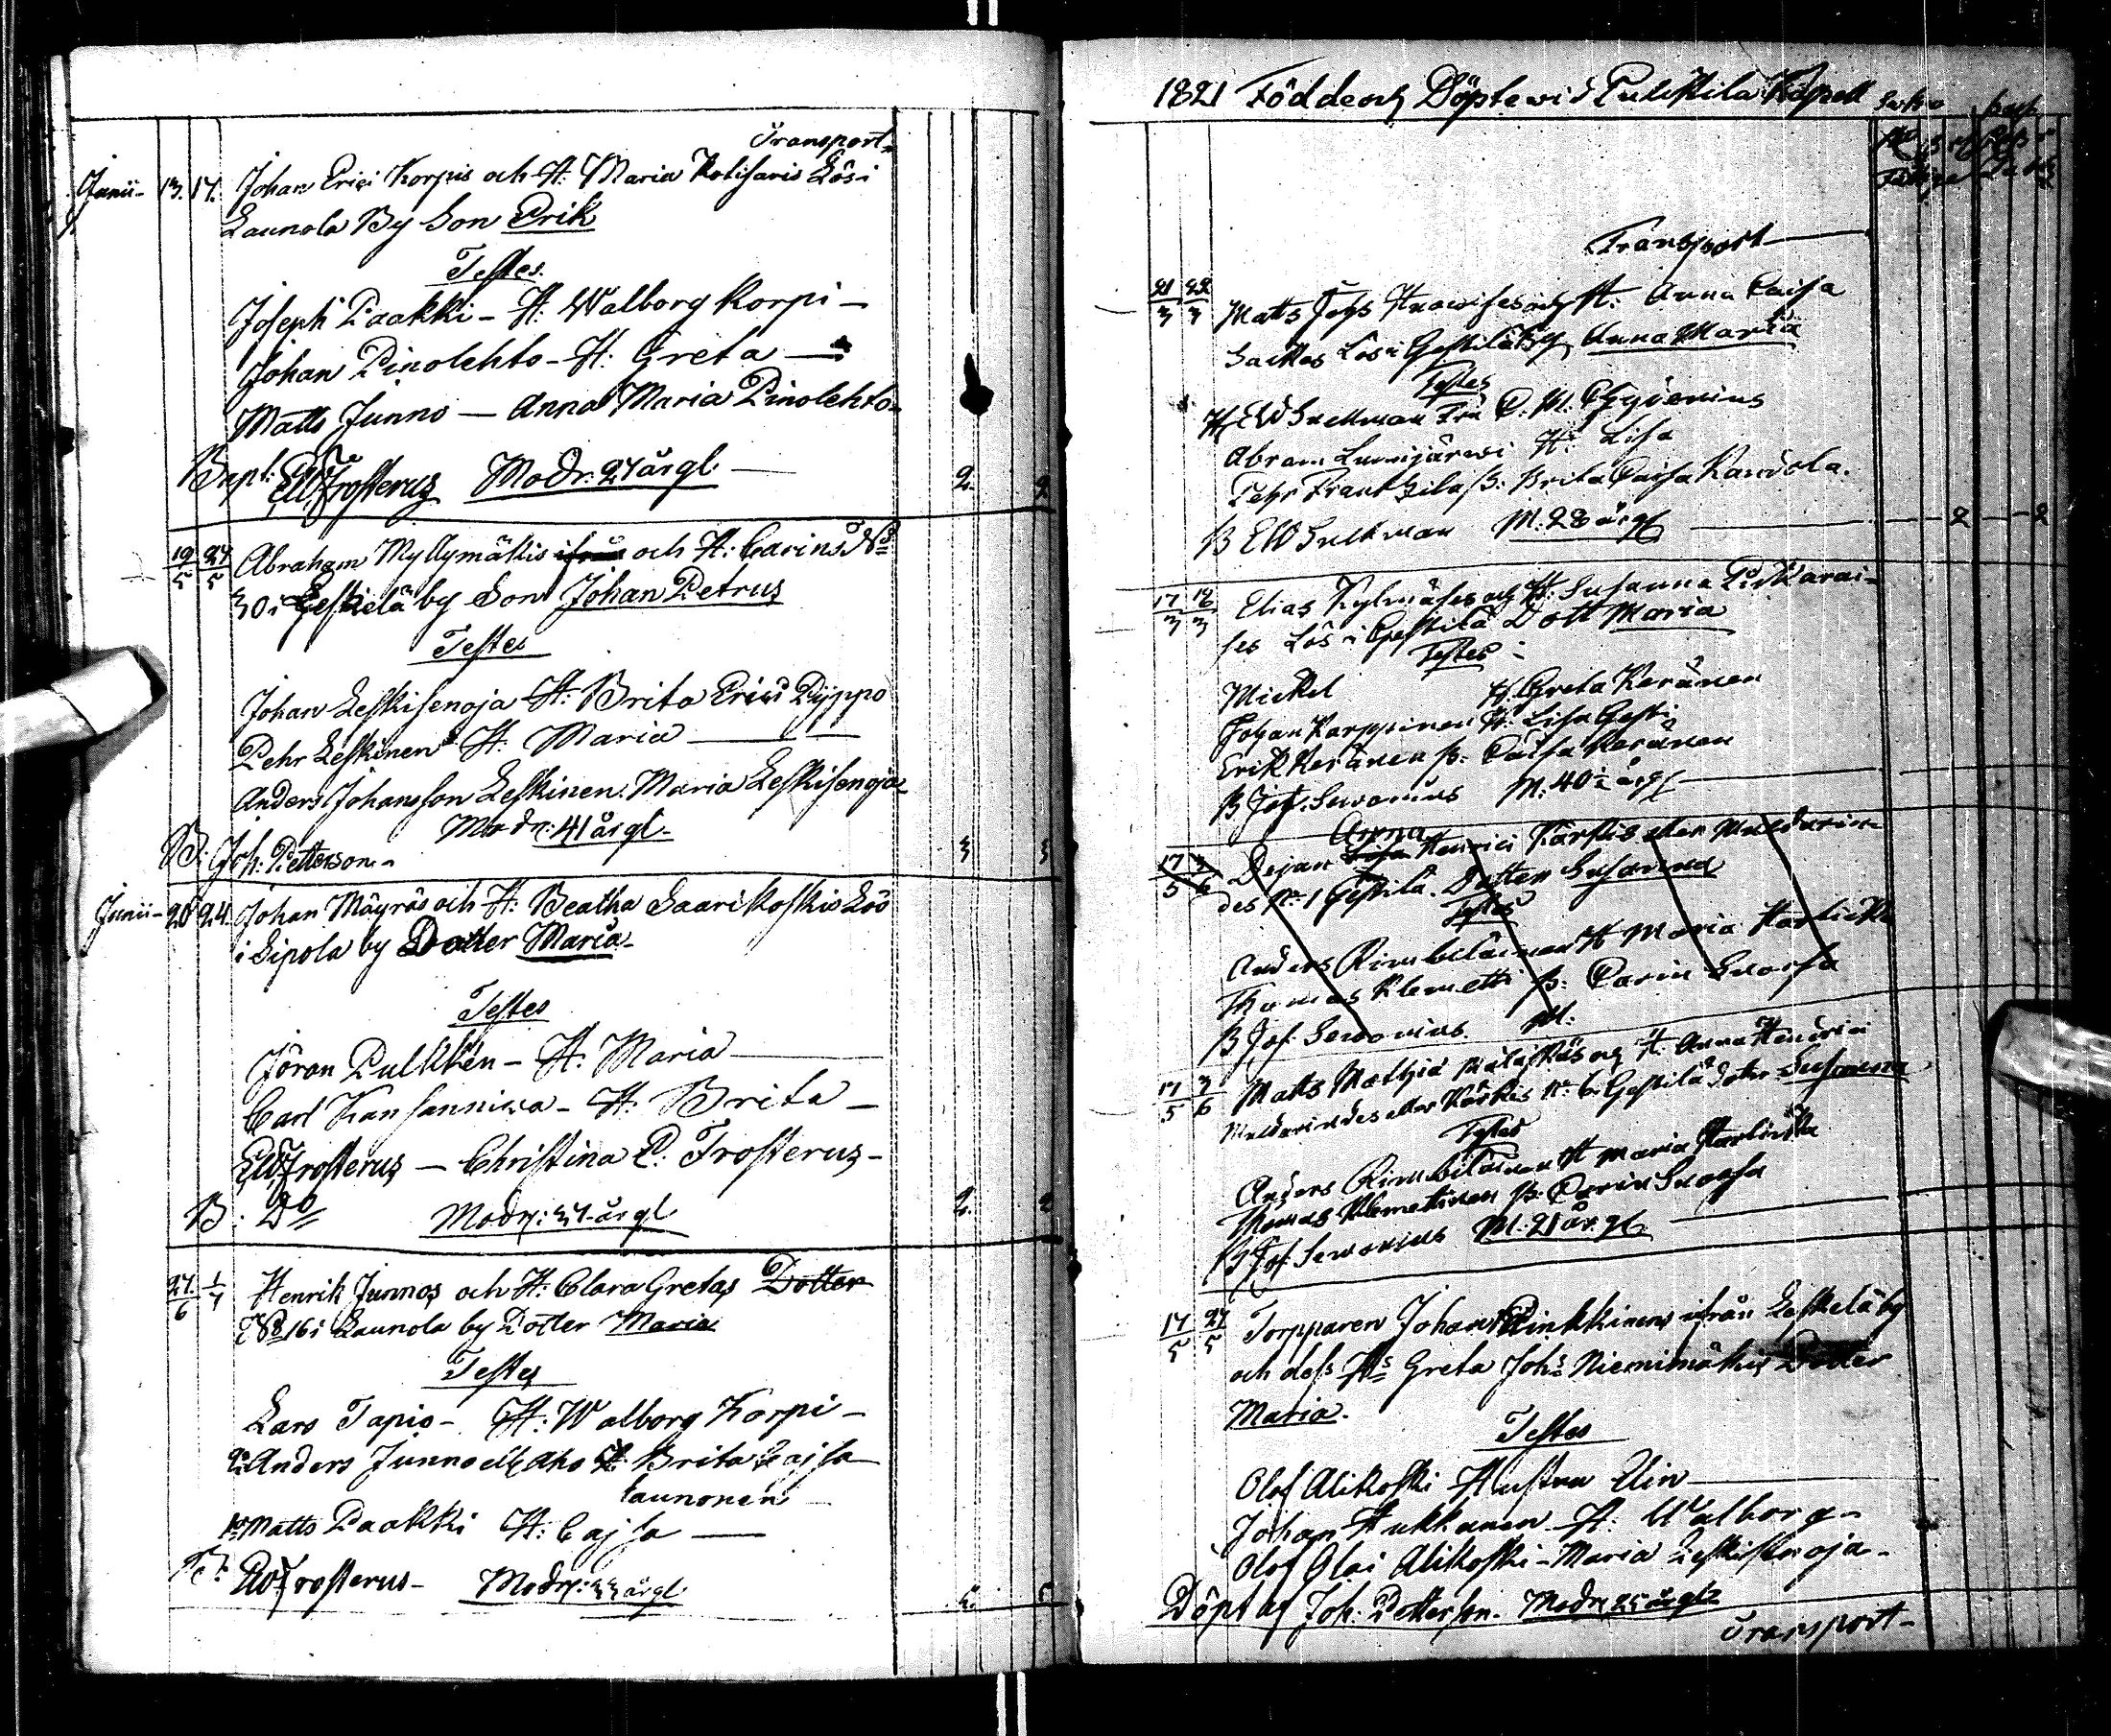 Transport
Junii 13. 17. Johan Erici Korpis och H: Maria Kolisaris Lös i
Launola By Son Erik
Testes
Joseph Paakki - H: Walborg Korpi -
Johan Pinolehto - H: Greta —
Matts Junno — Anna Maria Pinolehto
Bapt: EW Frosterus Modr. 27 år gl. — 2. 2
19/5 27/5 Abraham Myllymäkis ifrån och H: Carins No
30 i Leskelä by Son Johan Petrus
Testes
Johan Leskisenoja H: Brita Erici Pyppo
Pehr Leskinen H: Maria —
Anders Johansson Leskinen. Maria Leskisenoja
Modr: 41 år gl.
B: Joh. Petterson. 3 3
Junii - 20 24. Johan Mäyräs och H: Beatha Saarikoskis Lös
i Sipola by Dotter Maria
Testes
Jöran Pulkkinen - H: Maria —
Carl Kansanniwa - H: Brita —
EW Frosterus — Christina E: Frosterus -
B: Do Modr: 37 år gl. 2. 2
27/6 1/7 Henrik Junnos och H: Clara Gretas Dotter
No 16 i Launola by Dotter Maria
Testes
Lars Tapio - H: Walborg Korpi -
2o Anders Junno ell. Aho H: Brita Cajsa
Launonen
1o Matts Paakki H: Cajsa —
EW Frosterus - Modr: 33 år gl. 5. 5
1821 Födde och Döpte wid Pulkkila Kapell
Transport —
21/3 22/3 Matts Johs och H: Anna Caisa
Lös i Gestilä By Anna Maria
Testes
H. EW Snellman Fru C. M. Chydenius
Abram Lumijärwi H: Lisa
Pehr Frantzila P: Brita Caisa Kandola.
B EW Snellman M. 28 år gl — 2 — 2
17/3 18/3 Elias Kylmäses och H: Susanna Pirkarai-
ses Lös i Gestilä Dott Maria
Testes
Mickel H. Greta Keränen
Johan Karppinen H: Lisa Gesti
Erik Keränen P: Caisa Keränen
B Jos. Sewonius M: 40 år gl —
Anna
17/5 3/6 Dejan Henrici Kärkis eller Muldarin-
des No 1 Gestilä. Dotter Susanna
Testes
Anders Rimbiläinen H Maria Harlicka
Thomas Klemetti P: Carin Snorsa
B Jos. Sewonius. M:
17/5 3/6 Matts Mathiæ och H: Anna Henrici
Muldarindes eller Kärkis No 6 Gestilä Dotr Susanna
Testes
Anders Rimbiläinen H Maria Harlicka
Thomas Klemetinen P: Carin Snorsa
B Jos. Sewonius M: 21 år gl —
17/5 27/5 Torpparen Johan Pinkkinens ifrån Leskelä by
och dess Hs Greta Johs Niemimäkis Dotter
Maria.
Testes
Olof Alikoski Hustru Elin —
Johan Hukkanen H: Walborg -
Olof Olai Alikoski - Maria Leskisenoja -
Döpt af Joh: Petterson. Modr 25 år gl
Transport -